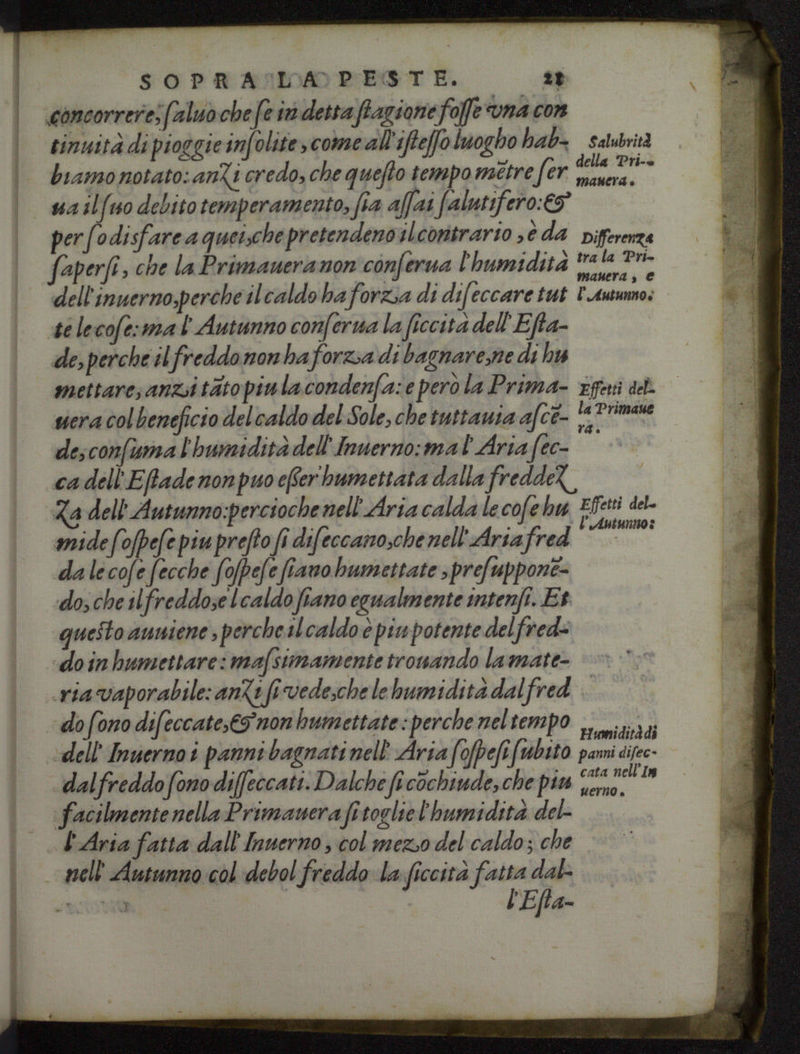 SOPRA LA PESTE. 21
concorrere, saluo che se in detta stagione fosse vna con
tinuità di pioggie insolite, come all'istesso luogho hab-
biamo notato: anzi credo, che questo tempo mẽtre ser
ua il suo debito temperamento, sia assai salutifero: &
per sodisfare a quei, che pretendeno il contrario, è da
sapersi, che la Primauera non conserua l'humidità
dell'inuerno, perche il caldo ha forza di diseccare tut
te le cose: ma l'Autunno conserua la siccità dell'Esta-
de, perche il freddo non ha forza di bagnare, ne di hu
mettare, anzi tãto piu la condensa: e però la Prima-
uera col beneficio del caldo del Sole, che tuttauia ascẽ-
de, consuma l'humidità dell'Inuerno: ma l'Aria sec-
ca dell'Estade non puo esser humettata dalla freddez
za dell'Autunno: percioche nell'Aria calda le cose hu
mide sospese piu presto si diseccano, che nell'Aria fred
da le cose secche sospese siano humettate, presupponẽ-
do, che il freddo, e l caldo siano egualmente intensi. Et
questo auuiene, perche il caldo è piu potente del fred-
do in humettare: massimamente trouando la mate-
ria vaporabile: anzi si vede, che le humidità dal fred
do sono diseccate, & non humettate: perche nel tempo
dell'Inuerno i panni bagnati nell'Aria sospesi subito
dal freddo sono disseccati. Dal che si cõchiude, che piu
facilmente nella Primauera si toglie l'humidità del-
l'Aria fatta dall'Inuerno, col mezo del caldo; che
nell'Autunno col debol freddo la siccità fatta dal-
l'Esta-
Salubrità
della Pri-
mauera.
Differenza
tra la Pri-
mauera, e
l'Autunno.
Effetti del-
la Primaue
ra.
Effetti del-
l'Autunno:
Humidità di
panni disec-
cata nell'In
uerno.